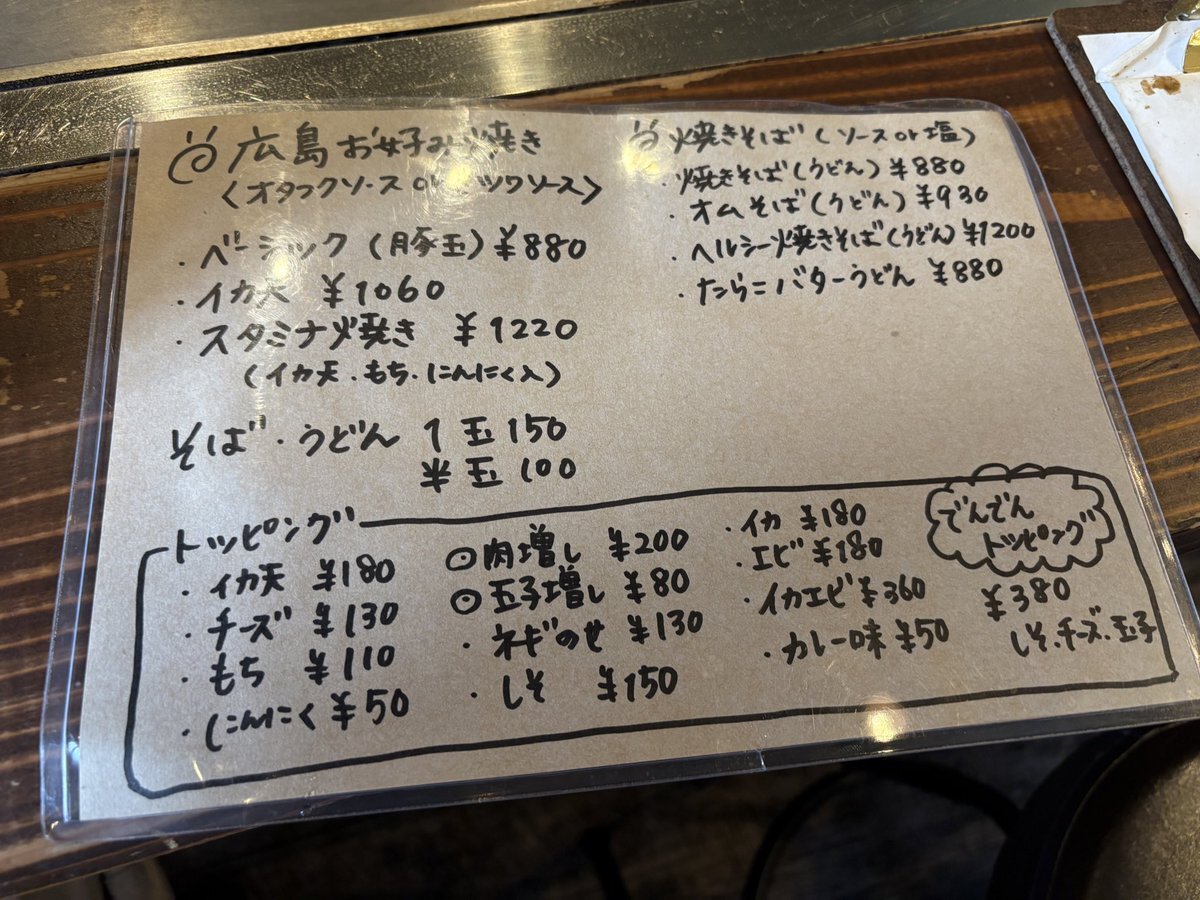 広島お好み焼き
〈オタフクソース or ミツワソース〉
・ベーシック(豚玉)¥880
・イカ天 ¥1060
・スタミナ焼き ¥1220
(イカ天・もち・にんにく入)
そば・うどん 1玉150
半玉100
焼きそば(ソースor塩)
・焼きそば(うどん)¥880
・オムそば(うどん)¥930
・ヘルシー焼きそば(うどん)¥1200
・たらこバターうどん ¥880
トッピング
・イカ天 ¥180
・チーズ ¥130
・もち ¥110
・にんにく ¥50
⦿肉増し ¥200
⦿玉子増し ¥80
・ネギのせ ¥130
・しそ ¥150
・イカ ¥180
・エビ ¥180
・イカエビ ¥360
・カレー味 ¥50
でんでん
トッピング
¥380
しそ・チーズ・玉子